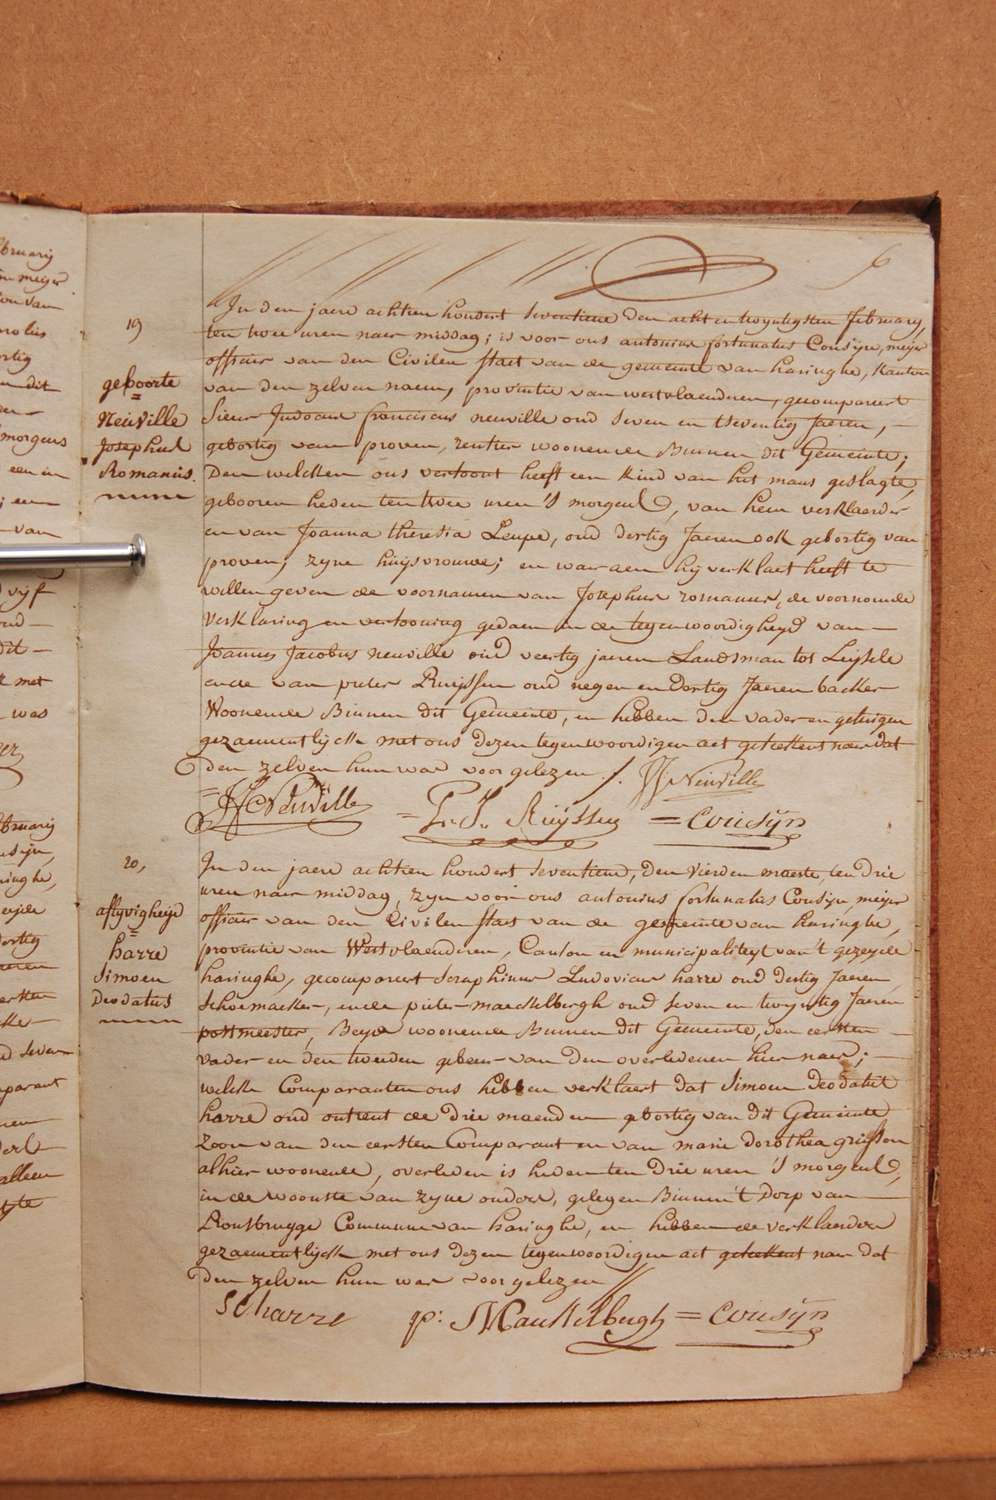 6
19
geboorte
=
Neuville
Josephus
Romanus.
In den jaere achtien hondert Seventiene den acht en twyntigsten february,
ten twee uren naer middag; is voor ons antonius fortunatus Cousyn, meijer
officier van den Civilen staet van de gemeente van haringhe, kanton
van den zelven naem, provintie van westvlaendren, gecompareert
Sieur Judocus franciscus neuville oud seven en tseventig Jaeren, —
gebortig van proven, rentier woonende Binnen dit Gemeente;
Den welcken ons vertoont heeft een kind van het mans geslagte,
gebooren heden ten twee uren 's morgens, van hem verklaerder
en van Joanna theresia Leupe, oud dertig Jaeren ook gebortig van
proven; zyne huijsvrouwe; en waeraen hij verklaert heeft te
willen geven de voornamen van Josephus romanus, de voornoemde
Verklaring en vertooning gedaen in de tegenwoordigheyd van —
Joannes Jacobus neuville oud veertig jaeren Landsman tot Leijsele
ende van pieter Ruijssen oud negen en dertig Jaeren backer
Woonende Binnen dit Gemeente, en hebben den vader en getuigen
gezaementlijck met ons dezen tegenwoordigen act geteekent naer dat
den zelven hun was voorgelezen /.
JJ Neuville
JF Neuville
= P. J. Ruijssen = Cousÿn
20,
aflyvigheijd
=
harre
Simoen
Deodatus
In den jaere achtien hondert Seventiene, den vierden maerte, ten drie
uren naer middag, zyn voor ons antonius fortunatus Cousijn, meijer
officier van den Civilen staet van de gemeente van haringhe,
provintie van Westvlaendren, Canton en municipaliteyt van 't gezeyde
haringhe, gecompareert Seraphinus Ludovicus harre oud dertig Jaeren
Schoemacker, ende pieter maeckelbergh oud seven en twyntig Jaeren
postmeester, Beyde woonende Binnen dit Gemeente, den eersten —
vader en den tweeden gebeur van den overledenen hier naer; —
welcke Comparanten ons hebben verklaert dat Simoen deodatus
harre oud ontrent de drie maenden gebortig van dit Gemeente
Zoon van den eersten Comparant en van marie dorothea
alhier woonende, overleden is heden ten drie uren 's morgens,
in de woonste van zyne ouders, gelegen Binnen 't Dorp van —
Rousbrugge Commune van haringhe, en hebben de verklaerders
gezaementlijck met ons dezen tegenwoordigen act geteekent naer dat
den zelven hun was voorgelezen //
SL harre p: Maeckelbergh = Cousÿn